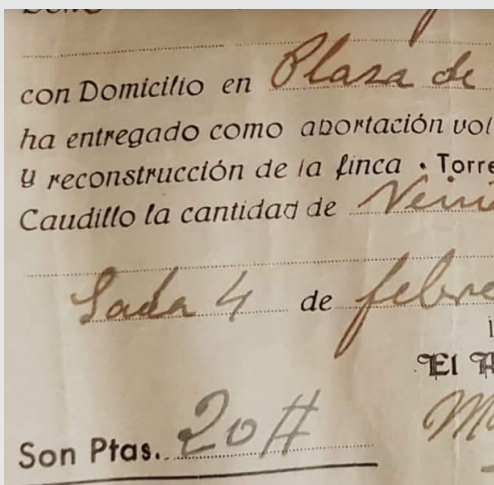 con Domicilio en Plaza de
ha entregado como aportación vol
y reconstrucción de la finca . Torre
Caudillo la cantidad de Vein
Sada 4 de febre
El A
Son Ptas. 20#